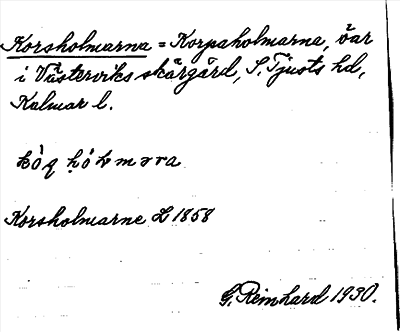 Korsholmarna = Korpaholmarna, öar
i Västerviks skärgård, S. Tjusts hd,
Kalmar l.
Korsholmarne L 1858
G. Reinhard 1930.